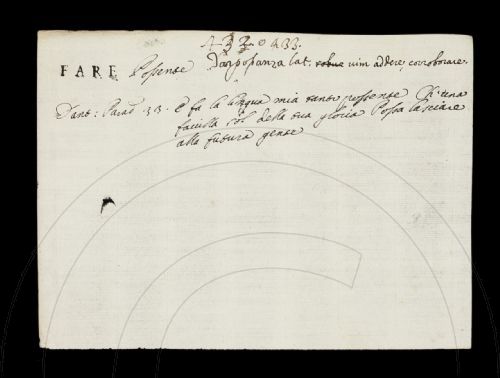 433 o 433.
FARE Possente Dar possanza lat: robur vim addere, corroborare.
Dant: Parad. 33. E fa la lingua mia tanto possente Ch'una
favilla sol della tua gloria Possa lasciare
alla futura gente